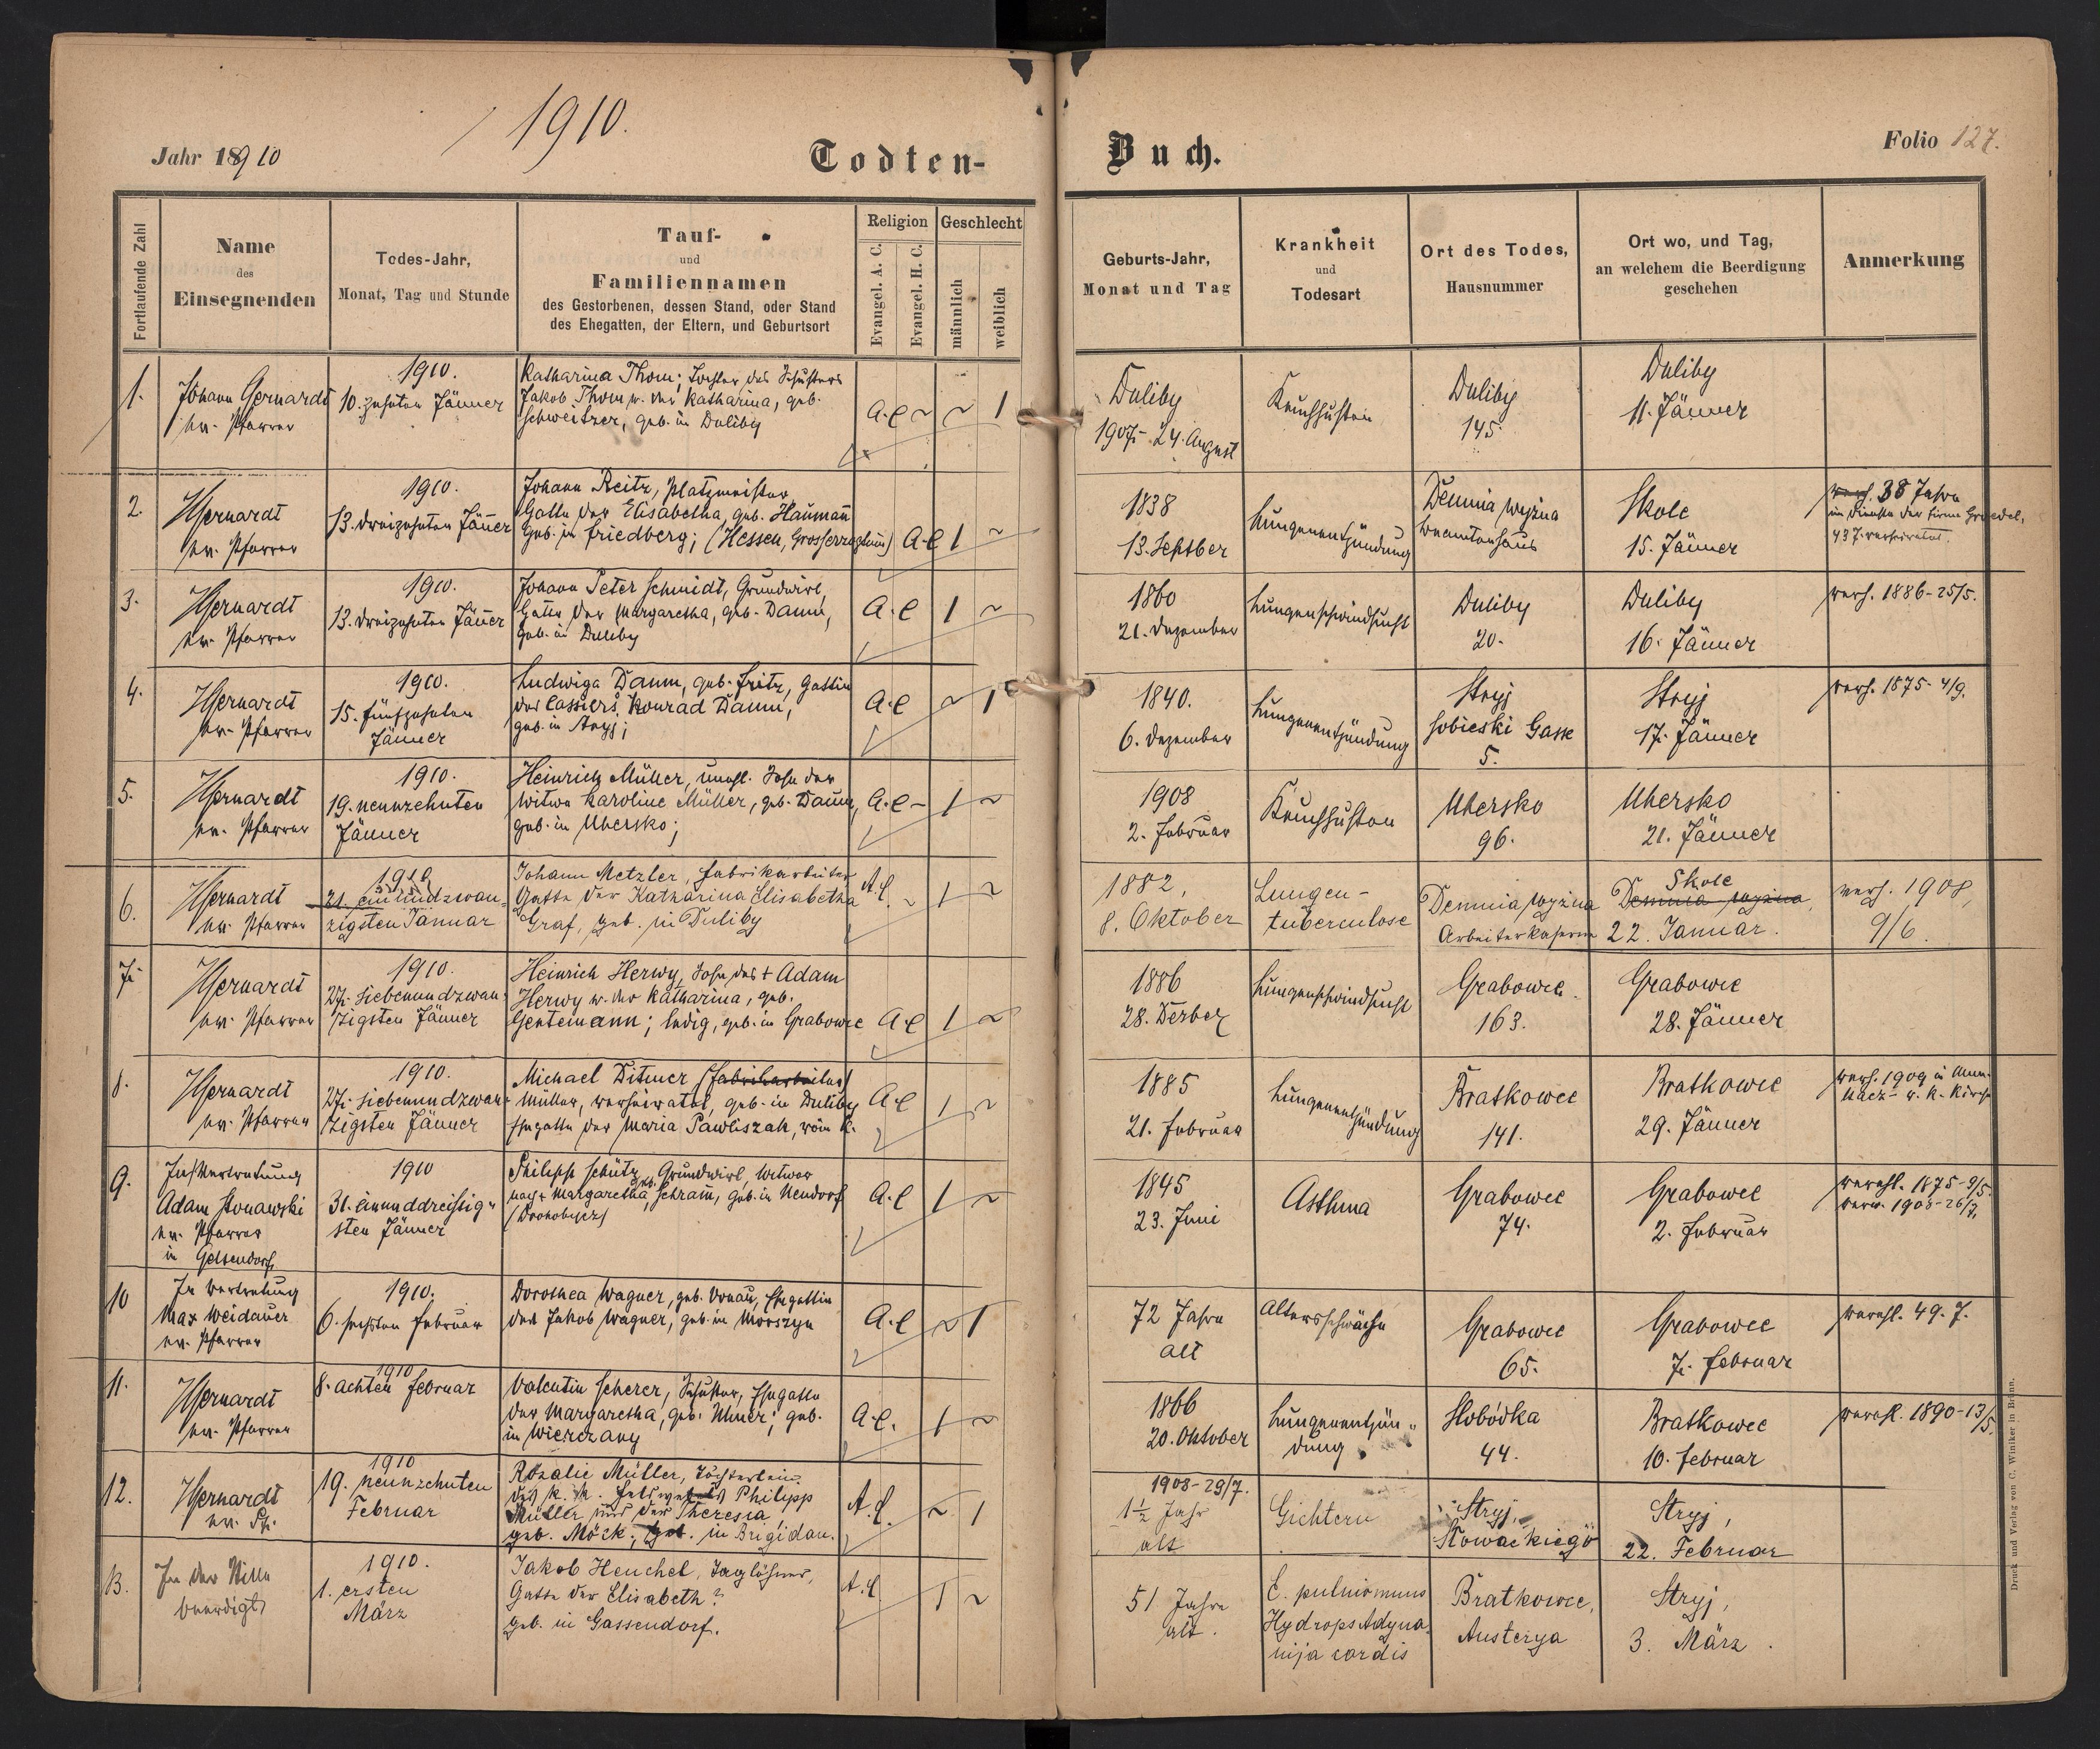 1910.
Jahr 1910
Todten-
Buch.
Folio 127.
Fortlaufende Zahl
Name
des
Einsegnenden
Todes-Jahr,
Monat, Tag und Stunde
Tauf-
und
Familiennamen
des Gestorbenen, dessen Stand, oder Stand
des Ehegatten, der Eltern, und Geburtsort
Religion
Evangel. A. C.
Evangel. H. C.
Geschlecht
männlich
weiblich
Geburts-Jahr,
Monat und Tag
Krankheit
und
Todesart
Ort des Todes,
Hausnummer
Ort wo, und Tag,
an welchem die Beerdigung
geschehen
Anmerkung
1.
Johann Gernardt
ev. Pfarrer
1910.
10. zehnten Jänner
Katharina Thom; Tochter des Schusters
Jakob Thom u. der Katharina, geb.
Schweitzer, geb. in Duliby
A.C ~ ~ 1
Duliby
1907 - 24. August
Keuchhusten
Duliby
145
Duliby
11. Jänner
2.
JGernardt
ev. Pfarrer
1910.
13. dreizehnten Jäner
Johann Reitz, Platzmeister,
Gatte der Elisabetha, geb. Haumann
Geb. in Friedberg; (Hessen, Grossherzogtum)
A.C 1 ~
1838
13. Septber
Lungenentzündung
Demnia wyżna
Beamtenhaus
Skole
15. Jänner
38 Jahre
im Dienste der Firma Groedel,
43 J. verheiratet.
3.
JGernardt
ev. Pfarrer
1910.
13. dreizehnten Jäner
Johann Peter Schmidt, Grundwirt,
Gatte der Margaretha, geb. Daum,
Geb. in Duliby
A.C 1 ~
1860
21. Dezember
Lungenschwindsucht
Duliby
20.
Duliby
16. Jänner
verh. 1886 - 25/5.
4.
JGernardt
ev. Pfarrer
1910.
15. fünfzehnten
Jänner
Ludwiga Daum, geb. Fritz, Gattin
des Cassiers Konrad Daum,
geb. in Stryj;
A.C ~ 1
1840.
6. Dezember
Lungenentzündung
Stryj
Sobieski Gasse
5.
Stryj
17. Jänner
verh. 1875 - 4/9.
5.
JGernardt
ev. Pfarrer
1910.
19. neunzehnten
Jänner
Heinrich Müller, unehl. Sohn der
Witwe Karoline Müller, geb. Daum,
geb. in Uhersko;
A.C - 1 ~
1908
2. Februar
Keuchhusten
Uhersko
96.
Uhersko
21. Jänner
6.
JGernardt
ev. Pfarrer
1910
21. einundzwan-
zigsten Januar
Johann Metzler, Fabrikarbeiter
Gatte der Katharina Elisabetha
Graf, geb. in Duliby
A.C. ~ 1 ~
1882,
8. Oktober
Lungen-
tuberculose
Demnia wyżna
Arbeiterkaserne
Skole
Demnia wyżna,
22. Januar.
verh. 1908,
9/6.
7.
JGernardt
ev. Pfarrer
1910.
27. siebenundzwan-
zigsten Jänner
Heinrich Herwy, Sohn des + Adam
Herwy u. der Katharina, geb.
Gentemann; ledig, geb. in Grabowce
A.C 1 ~
1886
28. Dezber
Lungenschwindsucht
Grabowce.
163.
Grabowce
28. Jänner
8.
JGernardt
ev. Pfarrer
1910.
27. siebenundzwan-
zigsten Jänner
Michael Ditmer (Fabrikarbeiter)
Müller, verheiratet, geb. in Duliby
Ehegatte der Maria Pawliszak, röm. k.
A.C 1 ~
1885
21. Februar
Lungenentzündung
Bratkowce
141.
Bratkowce
29. Jänner
verh. 1909 in
r. k. Kirche
9.
In Vertretung
Adam Stonawski
ev. Pfarrer
in Gelsendorf
1910
31. einunddreissig-
sten Jänner
Philipp Schütz, Grundwirt, Witwer
nach + Margaretha, geb. Schram, geb. in Neudorf
(Drohobycz)
A.C 1 ~
1845
23. Juni
Asthma
Grabowce
74.
Grabowce
2. Februar
verehl. 1875 - 9/5.
verw. 1908 - 26/7.
10
In Vertretung
Max Weidauer
ev. Pfarrer
1910.
6. sechsten Februar
Dorothea Wagner, geb. Vonau, Ehegattin
des Jakob Wagner, geb. in Morszyn
A.C ~ 1
72 Jahre
alt
Altersschwäche
Grabowce
65.
Grabowce
7. Februar
verehl. 49. J.
11.
JGernardt
ev. Pfarrer
1910
8. achten Februar
Valentin Scherer, Schuster, Ehegatte
der Margaretha, geb. Ulmer; geb.
in Wierczany
A.C. 1 ~
1866
20. Oktober
Lungenentzün-
dung
Slobódka
44.
Bratkowce
10. Februar
verehl. 1890 - 13/5.
12.
JGernardt
ev. Pf.
1910
19. neunzehnten
Februar
Rozalie Müller, Töchterlein
des k. k. Feldwebels Philipp
Müller und der Theresia,
geb. Möck; geb. in Brigidau.
A.C. ~ 1
1908 - 29/7.
1 1/2 Jahr
alt
Gichtern
Stryj,
Slowackiego
Stryj,
22. Februar
13.
In der Stille
beerdigt
1910.
1. ersten
März
Jakob Henchel, Taglöhner,
Gatte der Elisabeth?
geb. in Gassendorf.
A.C 1 ~
51 Jahre
alt.
E. pulmonum
Hydrops Adyna-
mija cordis
Bratkowce,
Austerya
Stryj,
3. März.
Druck und Verlag von C. Winiker in Brünn.